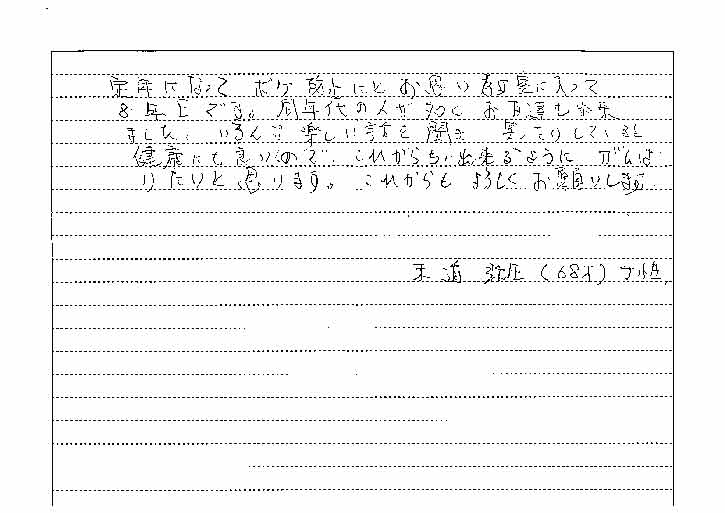 定年になって ボケ防止にとお思い 寿教室に入って
8年目です。同年代の人が多く お友達も出来
ました。いろんな楽しい話を聞き 笑ったりしていると
健康にも良いので これからも出来るように がんば
りたいと思います。これからも よろしくお願いします
(68才) 女性